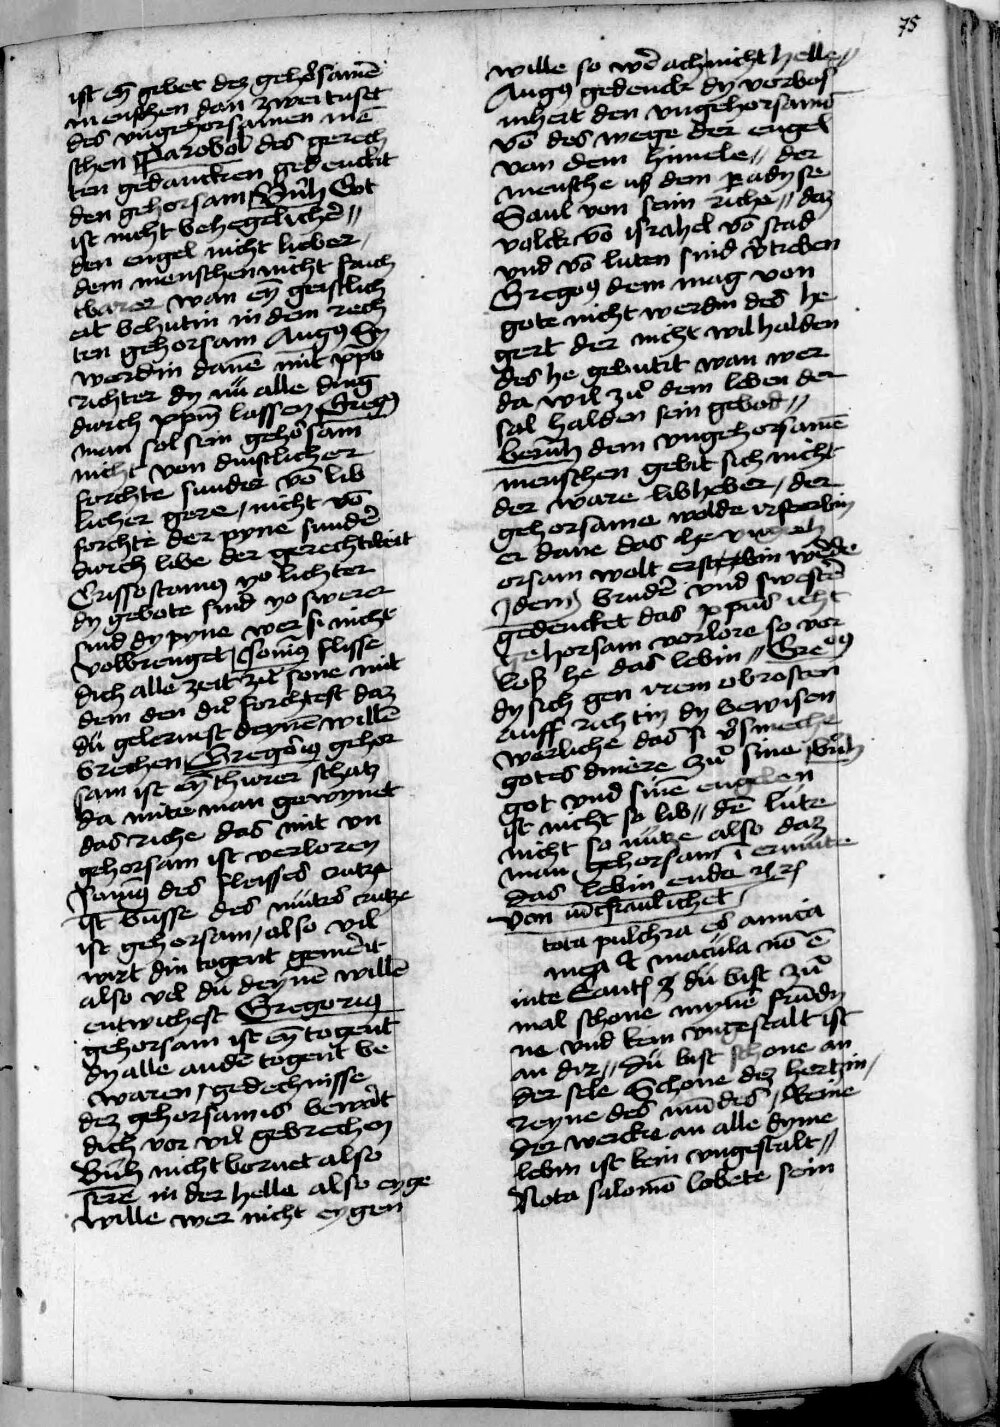 75
ist eỹ gebet dez gehorsamē
menschen dan zwei tuset
des vngehorsamen mē
schen Parobol des gerech
ten gedancken gedenckit
den gehorsam Bnh͂ Got
ist nicht behegelicher͂ //
den engel nicht lieber /
dem menschen nicht fruch
tbarer wan eỹ geistlich
eit behutin in dem rech
ten gehorsam Augꝰ Sy
werdin danē mit xpo
richter dy nü alle ding
durch xpm̄ lassen Gregꝰ
man sol sein gehorsam
nicht von dinstlicher
forchte sunder vō lib
licher gere / nicht vō
forchte der pyne sunder͂
durch libe der gerechtikeit
Crissostomꝰ yo lichter
dy gebote sind yo swerer
sind dy pyne wer si nicht
volbrenget Jonimꝰ flisse
dich alle zeit zü sone mit
dem den du forchtest daz
dü gelernst deynē willē
brechen Gregoriꝰ gehor
sam ist eỹ thurer schatz
da mite man gewynet
das riche das mit vn
gehorsam ist verloren
Jonimꝰ des fleisses cutze
ist busse des mütes cutze
ist gehorsam / also vil
wirt din togent gemerit
also vel du deynē willē
entwichest Gregoriꝰ
gehorsam ist eỹ togent
dy alle ander togent be
waren / gedechnisse
dez gehorsamis bewart
dich vor vil gebrechen
Bnh͂ nicht bornet also
sere in der helle also eyge
wille wer nicht eygen
wille so wer ach nicht helle //
Augꝰ gedenck dy vorbos
inheit den vngehorsamē
vō des wege der engel
von dem himele // der
mensche uß dem paradyse
Saul von seim riche // daz
volck vō israhel vō stad
vnd vō luten sind v͂treben
Gregoꝰ dem mag von
gote nicht werdin des he
gert der nicht wil halden
des he gebutit wan wer
da wil zü dem leben der
sal halden sein gebot //
bernh͂ dem vngehorsamē
menschen gebit sich nicht
der ware libheber / der
gehorsame wolde irsterbin
er dane das he vngeh
orsam wolt ersterbin werde
Idem bruder vnd swester
gedencket das xp̄us icht
gehorsam vorlore so vor
loß he das lebin // Greoꝰ
dy sich gen irem obrosten
auff richtin dy bewisen
werliche das si v͂smeche
gotes dinere zü sine Bnh͂
got vnd sinē engelen
ist nicht so lib // dē lüte
nicht so nutze also daz
man gehorsam i ermute
das lebin ende
von iūcfraulichet
tota pulchra es amica
mea et macula nō ē
inte Cant dü bist zü
mal schone myne fründy
ne vnd kein vngestalt ist
an dir // dü bist schone an
der sele Schone dez hertzin /
reyne des mūdes / keine
der wercke an alle dyme
lebin ist kein vngestalt //
Nota salomō lobete sein